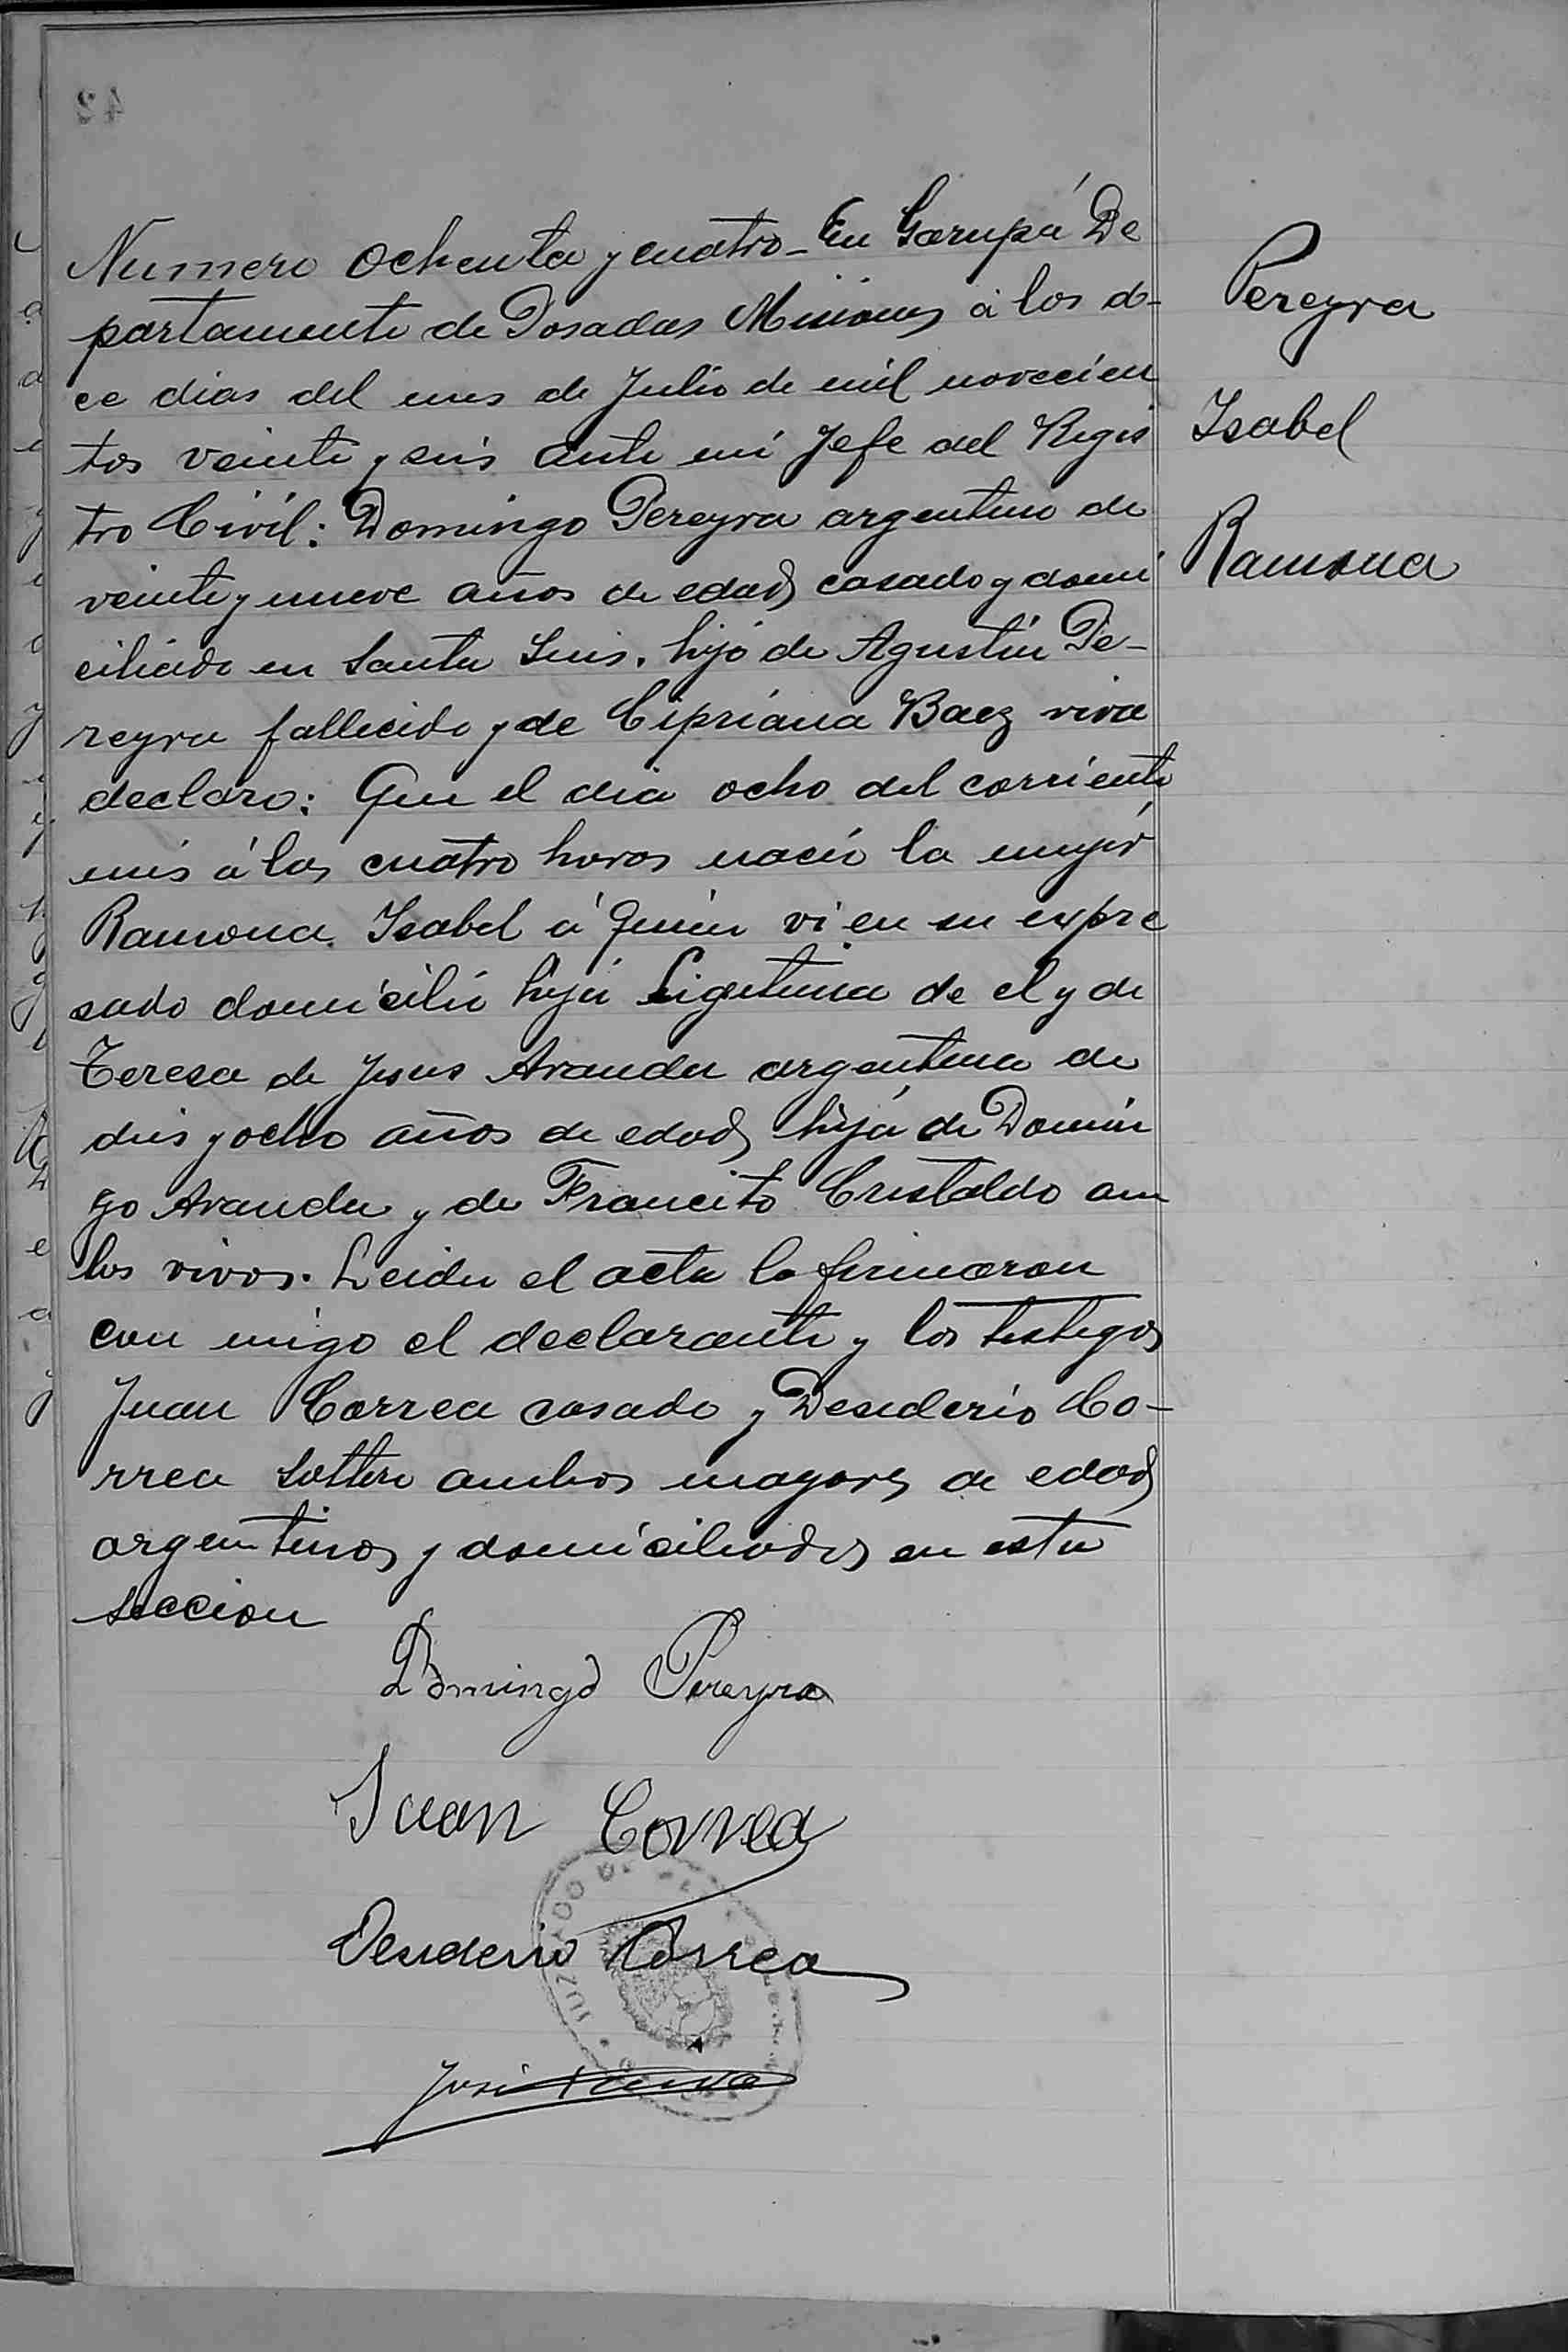 Numero ochenta y cuatro - En Garupá De
partamento de Posadas Misiones á los do-
ce dias del mes de Julio de mil novecien
tos veinte y seis ante mi Jefe del Regis
tro Civil: Domingo Pereyra argentino de
veinte y nueve años de edad casado y domi
ciliado en Santa Luis. hijo de Agustín Pe-
reyra fallecido y de Cipriana Baez viva
declaro: Que el dia ocho del corriente
mes á las cuatro horas nació la mujer
Ramona Isabel á quien vi en su expre
sado domicilio hija Ligitima de el y de
Teresa de Jesus Aranda argentina de
dies y ocho años de edad hija de Domin
go Aranda y de Francisto Cristaldo am
bos vivos. Leida el acta la firmaron
con migo el declarante y los testigos
Juan Correa casado y Desederio Co-
rrea soltero ambos mayores de edad
argentinos y domiciliados en esta
seccion
Pereyra
Isabel
Ramona
Domingo Pereyra
Juan Correa
Desiderio Correa
José